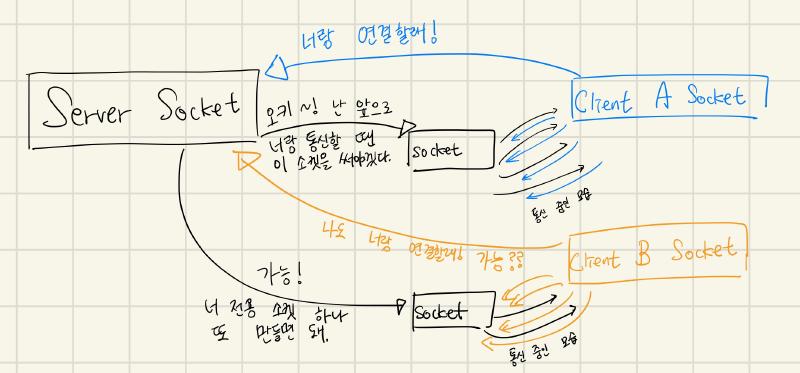 너랑 연결할래!
Server Socket
Client A Socket
오키~잉 난 앞으로
너랑 통신할 땐
이 소켓을 써야겠다.
socket
통신 중인 모습
나도 너랑 연결할래! 가능??
Client B Socket
가능!
너 전용 소켓 하나
또 만들면 돼.
socket
통신 중인 모습